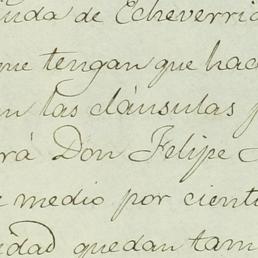 uda de Echeverria
que tengan que hac
n las cláusulas p
rá Don Felipe
medio por cient
idad quedan tam